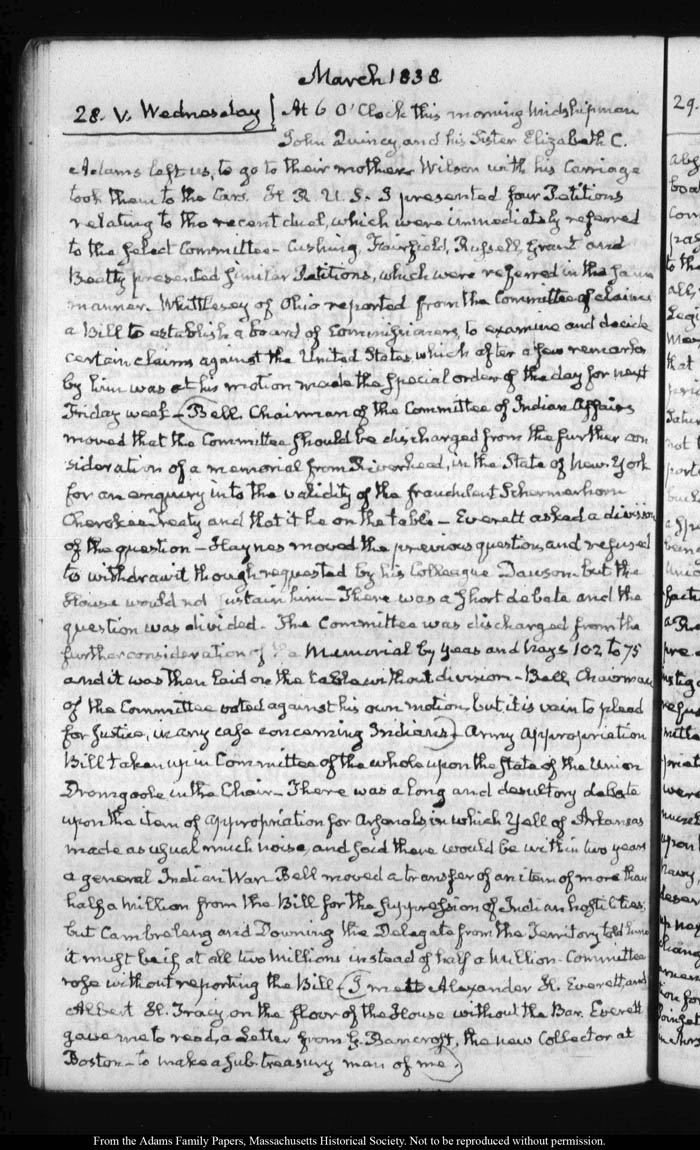 March 1838
28. V. Wednesday At 6 O'Clock this morning Midshipman
John Quincy, and his Sister Elizabeth C.
Adams left us, to go to their mother Wilson with his Carriage
took them to the Cars. H. R. U. S. I presented four Petitions
relating to the recent duel, which were immediately referred
to the Select Committee - Cushing, Fairfield, Russell, Grant and
Beatty presented similar Petitions, which were referred in the same
manner. Whittlesey of Ohio reported from the Committee of claims
a Bill to establish a board of Commissioners, to examine and decide
certain claims against the United States, which after a few remarks
by him was at his motion made the special order of the day for next
Friday week - Bell, Chairman of the Committee of Indian Affairs
moved that the Committee should be discharged from the further con
sideration of a memorial from Riverhead, in the State of New York
for an enquiry into the validity of the fraudulent Schermerhorn
Cherokee Treaty and that it lie on the table - Everett asked a division
of the question - Haynes moved the previous question, and refused
to withdraw it though requested by his Colleague Dawson. but the
House would not sustain him - There was a short debate and the
question was divided. The Committee was discharged from the
further consideration of the Memorial by Yeas and Nays 102 to 75
and it was then laid on the table without division - Bell, Chairman
of the Committee voted against his own motion, but it is vain to plead
for Justice, in any case concerning Indians - Army Appropriation
Bill taken up in Committee of the whole upon the State of the Union
Dromgoole in the Chair - There was a long and desultory debate
upon the item of appropriation for Arsenals in which Yell of Arkansas
made as usual much noise, and said there would be within two years
a general Indian War. Bell moved a transfer of an item of more than
half a Million from the Bill for the suppression of Indian hostilities,
but Cambreleng and Downing the Delegate from the Territory told him
it must be if at all two Millions instead of half a Million. Committee
rose without reporting the Bill. I met Alexander H. Everett, and
Albert H. Tracy, on the floor of the House without the Bar. Everett
gave me to read, a Letter from G. Bancroft, the new Collector at
Boston - to make a sub-treasury man of me.
29.
From the Adams Family Papers, Massachusetts Historical Society. Not to be reproduced without permission.